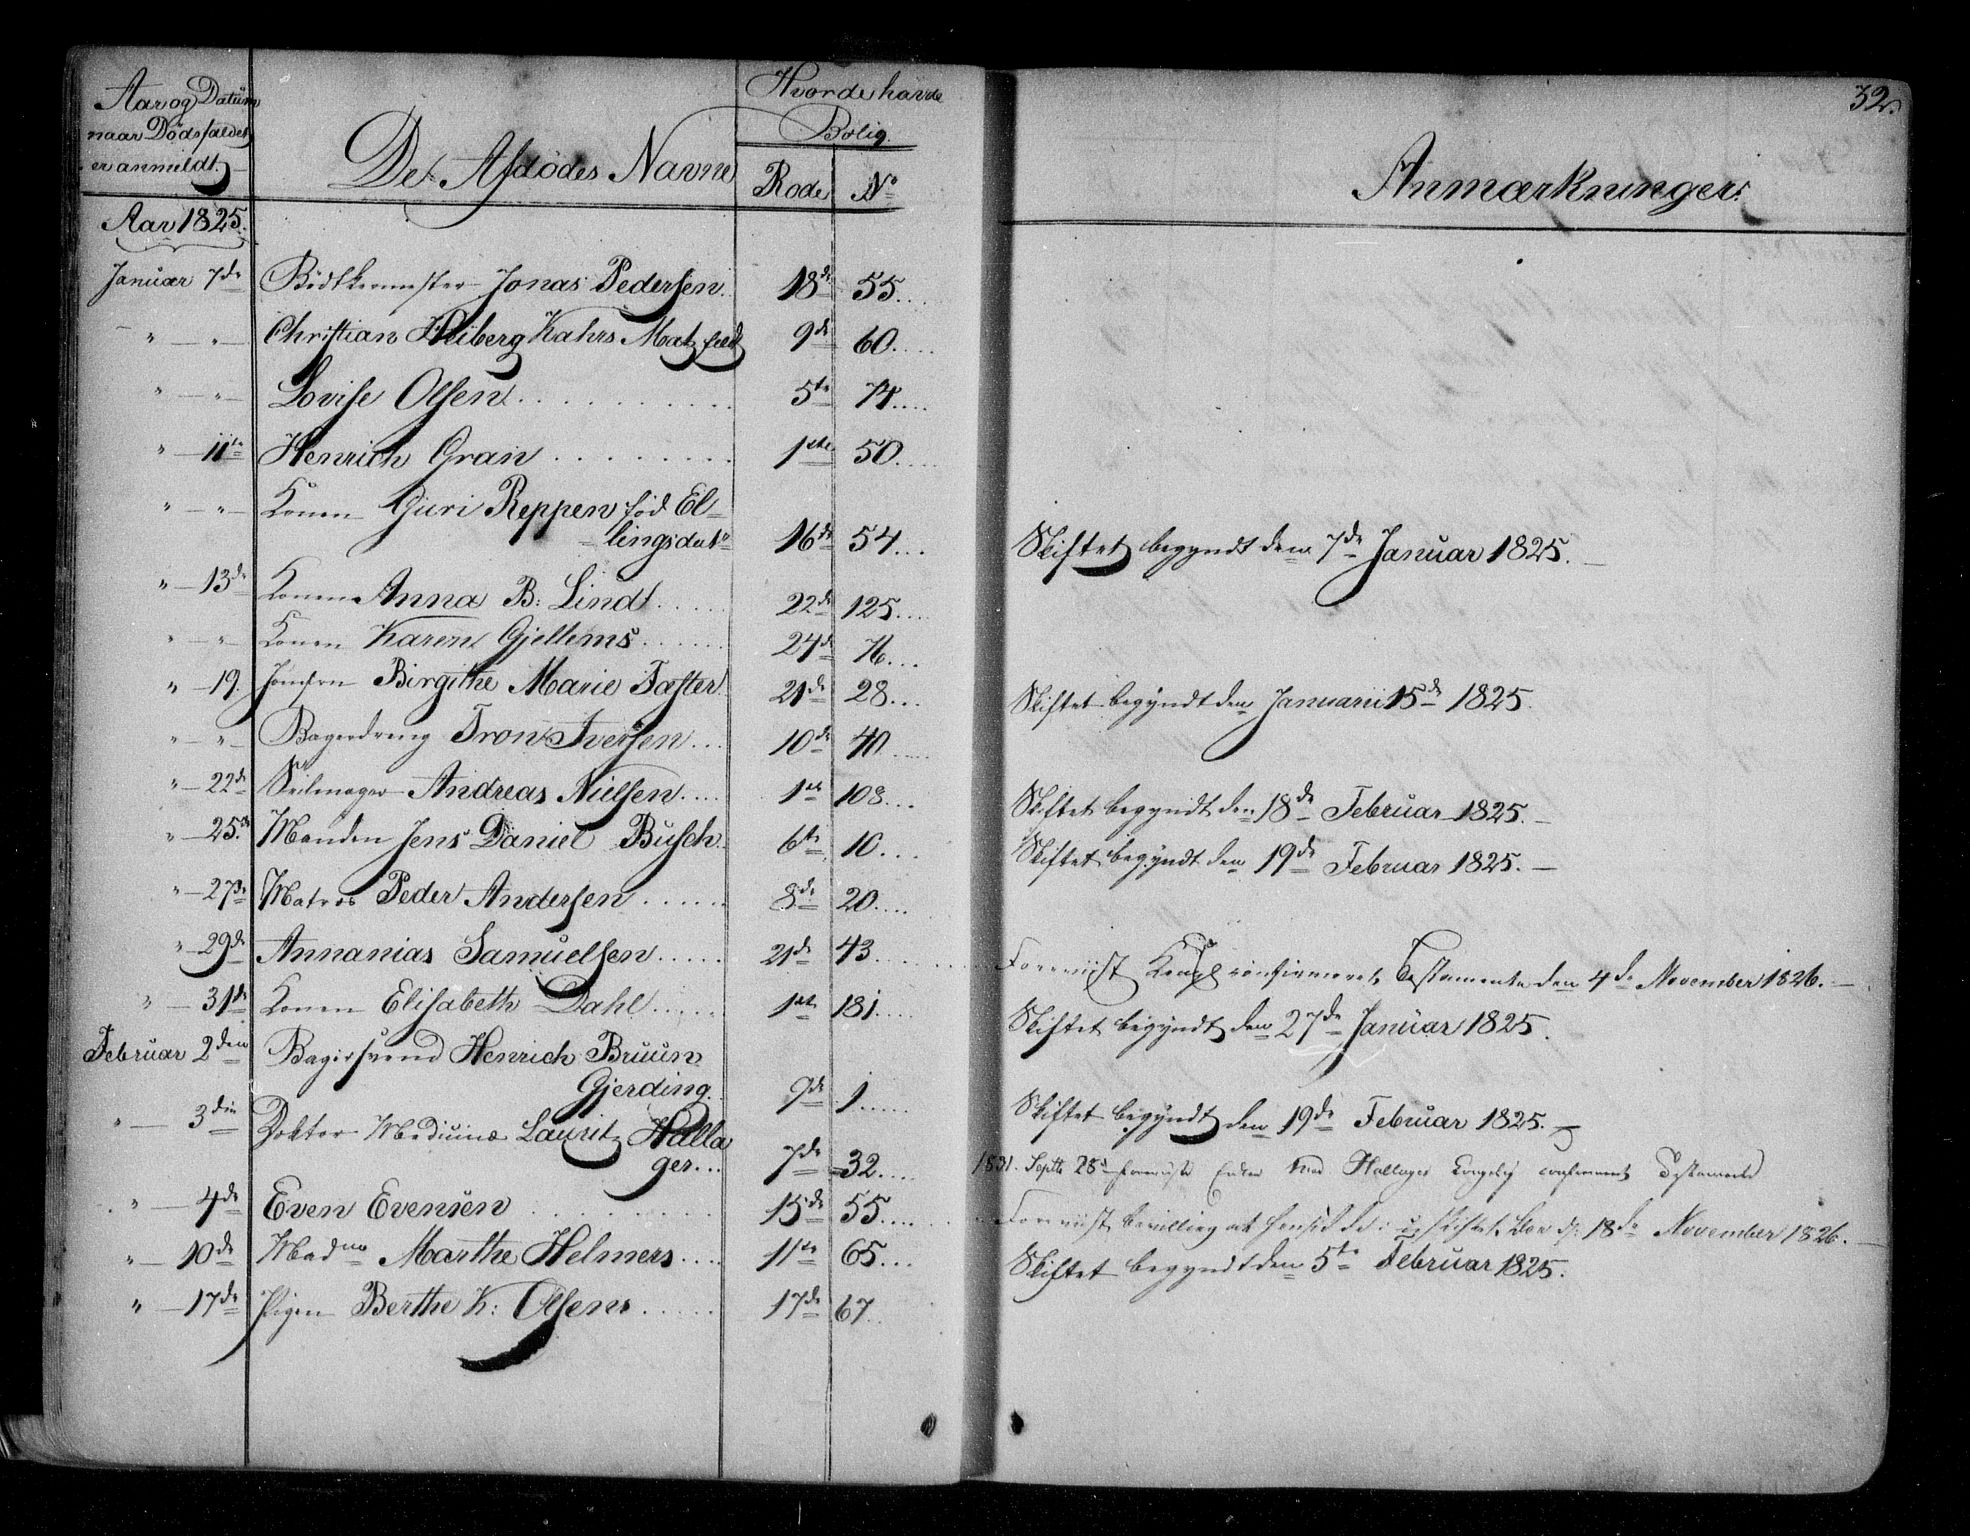 32.
Aar og Datum
naar Dødsfaldet
er anmeldt.
De Afdødes Navne
Hvor de havde
Bolig.
Rode No
Anmærkninger.
Aar 1825.
Januar 7de Bødtkermester Jonas Pedersen. 18de 55....
" — " — Christian Heiberg Kahrs Matzfeldt 9de 60....
" — " — Lovise Olsen.......... 5te 74....
" — 11te Henrich Gran........ 1ste 50....
" — " — Konen Guri Reppen fød El-
lingsdatr 16de 54... Skiftet begyndt den 7de Januar 1825. —
" — 13de Konen Anna B: Lindt..... 22de 125....
" — " — Konen Karen Gjellems...... 24de 76...
" — 19. Jomfru Birgithe Marie Fæster. 21de 28... Skiftet begyndt den Januarii 15de 1825.
" — " — Bagerdreng Tron Iversen... 10de 40....
" — 22de Seilmager Andreas Nielsen.... 1ste 108... Skiftet begyndt den 18de Februar 1825. —
" — 25de Manden Jens Daniel Busch. 6te 10... Skiftet begyndt den 19de Februar 1825. —
" — 27de Matros Peder Andersen...... 8de 20....
" — 29de Annanias Samuelsen..... 21de 43....... Foreviist Kongl confirmeret Testamente den 4de November 1826. —
" — 31de Konen Elisabeth Dahl...... 1ste 181.... Skiftet begyndt den 27de Januar 1825.
Februar 2den Bagersvend Henrich Bruun
Gjerding. 9de 1..... Skiftet begyndt den 19de Februar 1825. —
" — 3die Doktor Medicinæ Lauritz Halla
ger... 7de 32.... 1831. Septb 28d foreviiste Enken Mad Hallager Kongelig confirmeret Testamente
" — 4de Even Evensen.......... 15de 55.... Foreviist bevilling at hensidde i uskiftet Boe d: 18de November 1826. —
" — 10de Madme Marthe Helmers.... 11te 65... Skiftet begyndt den 5te Februar 1825.
" — 17de Pigen Berthe K: Olsens...... 17de 67..